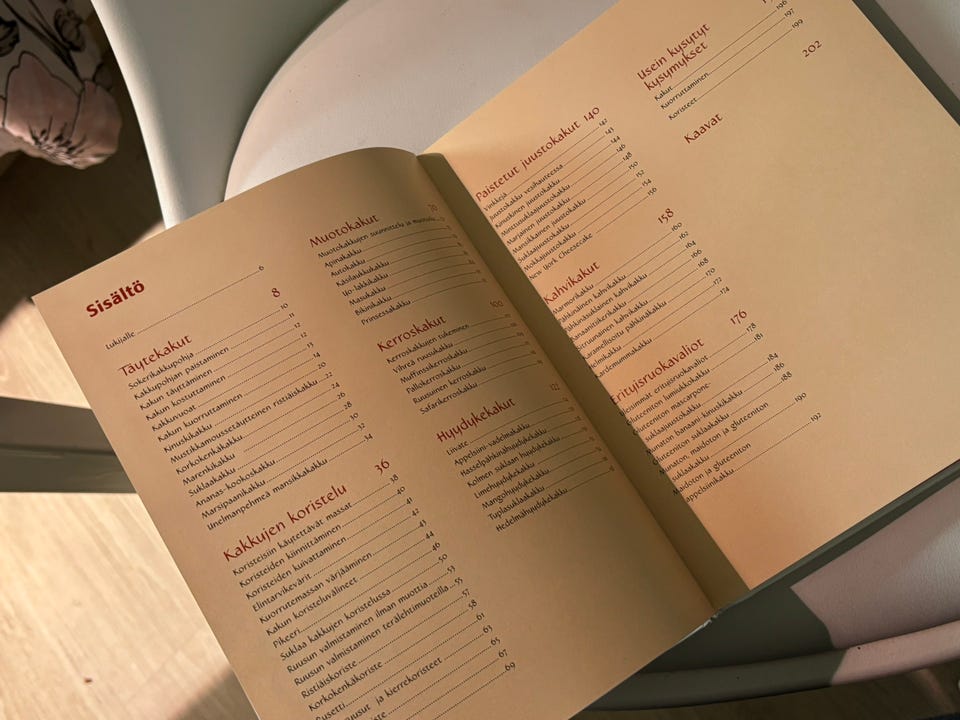 Sisältö
Lukijalle 6
Täytekakut 8
Sokerikakkupohja 10
Kakkupohjan paistaminen 11
Kakun täyttäminen 12
Kakun kostuttaminen 12
Kakkuvuoat 13
Kakun kuorruttaminen 14
Kinuskikakku 20
Mustikkamoussetäytteinen ristiäiskakku 22
Korkokenkäkakku 24
Marenkikakku 26
Suklaakakku 28
Ananas-kookoskakku 30
Marsipaanikakku 32
Unelmanpehmeä mansikkakakku 34
Kakkujen koristelu 36
Koristeisiin käytettävät massat 38
Koristeiden kiinnittäminen 40
Koristeiden kuivattaminen 41
Elintarvikevärit 42
Kuorrutemassan värjääminen 43
Kakun koristeluvälineet 44
Pikeeri 46
Suklaa kakkujen koristelussa 50
Ruusun valmistaminen ilman muottia 53
Ruusun valmistaminen terälehtimuoteilla 55
Ristiäiskoriste 57
Korkokenkäkoriste 58
Rusetti 61
ja kierrekoristeet 63
65
67
69
Muotokakut 70
Muotokakkujen suunnittelu ja muotoilu
Apinakakku
Autokakku
Käsilaukkukakku
Ufo-lakkakakku
Masukakku
Bikinikakku
Prinsessakakku
Kerroskakut 100
Kerroskakkujen tukeminen
Vihreä ruusukakku
Muffinssikerroskakku
Pallokerroskakku
Ruusuinen kerroskakku
Safarikerroskakku
Hyydykekakut 121
Liivate
Appelsiini-vadelmakakku
Hasselpähkinähyydykekakku
Kolmen suklaan hyydykekakku
Limehyydykekakku
Mangohyydykekakku
Tuplasuklaakakku
Hedelmähyydykekakku
Paistetut juustokakut 140
Vinkkejä 142
Juustokakku vesihauteessa 143
Kinuskinen juustokakku 144
Minttusuklaajuustokakku 146
Marjainen juustokakku 148
Mansikkainen juustokakku 150
Suklaajuustokakku 152
Mokkajuustokakku 154
New York Cheesecake 156
Kahvikakut 158
Marmorikakku 160
Pähkinäinen kahvikakku 162
kahvikakku 164
166
kahvikakku 168
Karamellisoitu pähkinäkakku 170
172
Kardemummakakku 174
Erityisruokavaliot 176
Yleisimmät erityisruokavaliot 178
Gluteeniton lumikkokakku 181
Gluteeniton mascarpone-
suklaajuustokakku 184
Munaton banaani-kinuskikakku 186
Gluteeniton suklaakakku 188
Munaton, maidoton ja gluteeniton
suklaakakku 190
Maidoton ja gluteeniton
appelsiinikakku 192
Usein kysytyt
kysymykset
Kakut 196
Kuorruttaminen 197
Koristeet 199
Kaavat 202